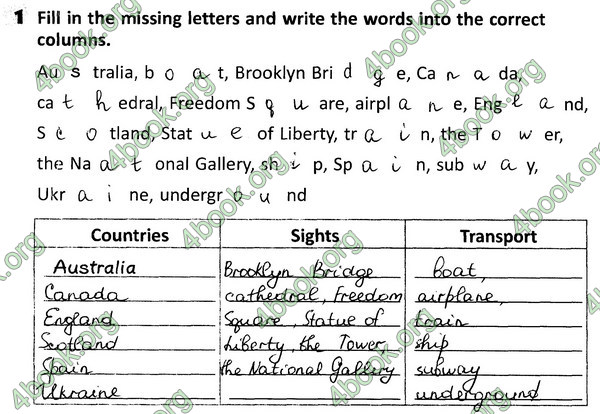 1 Fill in the missing letters and write the words into the correct
columns.
Au s tralia, b o a t, Brooklyn Bri d g e, Ca n a da,
ca t h edral, Freedom S q u are, airpl a n e, Eng l a nd,
S c o tland, Stat u e of Liberty, tr a i n, the T o w er,
the Na a t onal Gallery, sh i p, Sp a i n, sub w a y,
Ukr a i ne, undergr o u nd
Countries Sights Transport
Australia Brooklyn Bridge boat,
Canada cathedral, Freedom airplane,
England Square, Statue of train
Scotland Liberty, the Tower, ship
Spain the National Gallery subway
Ukraine underground
4book.org